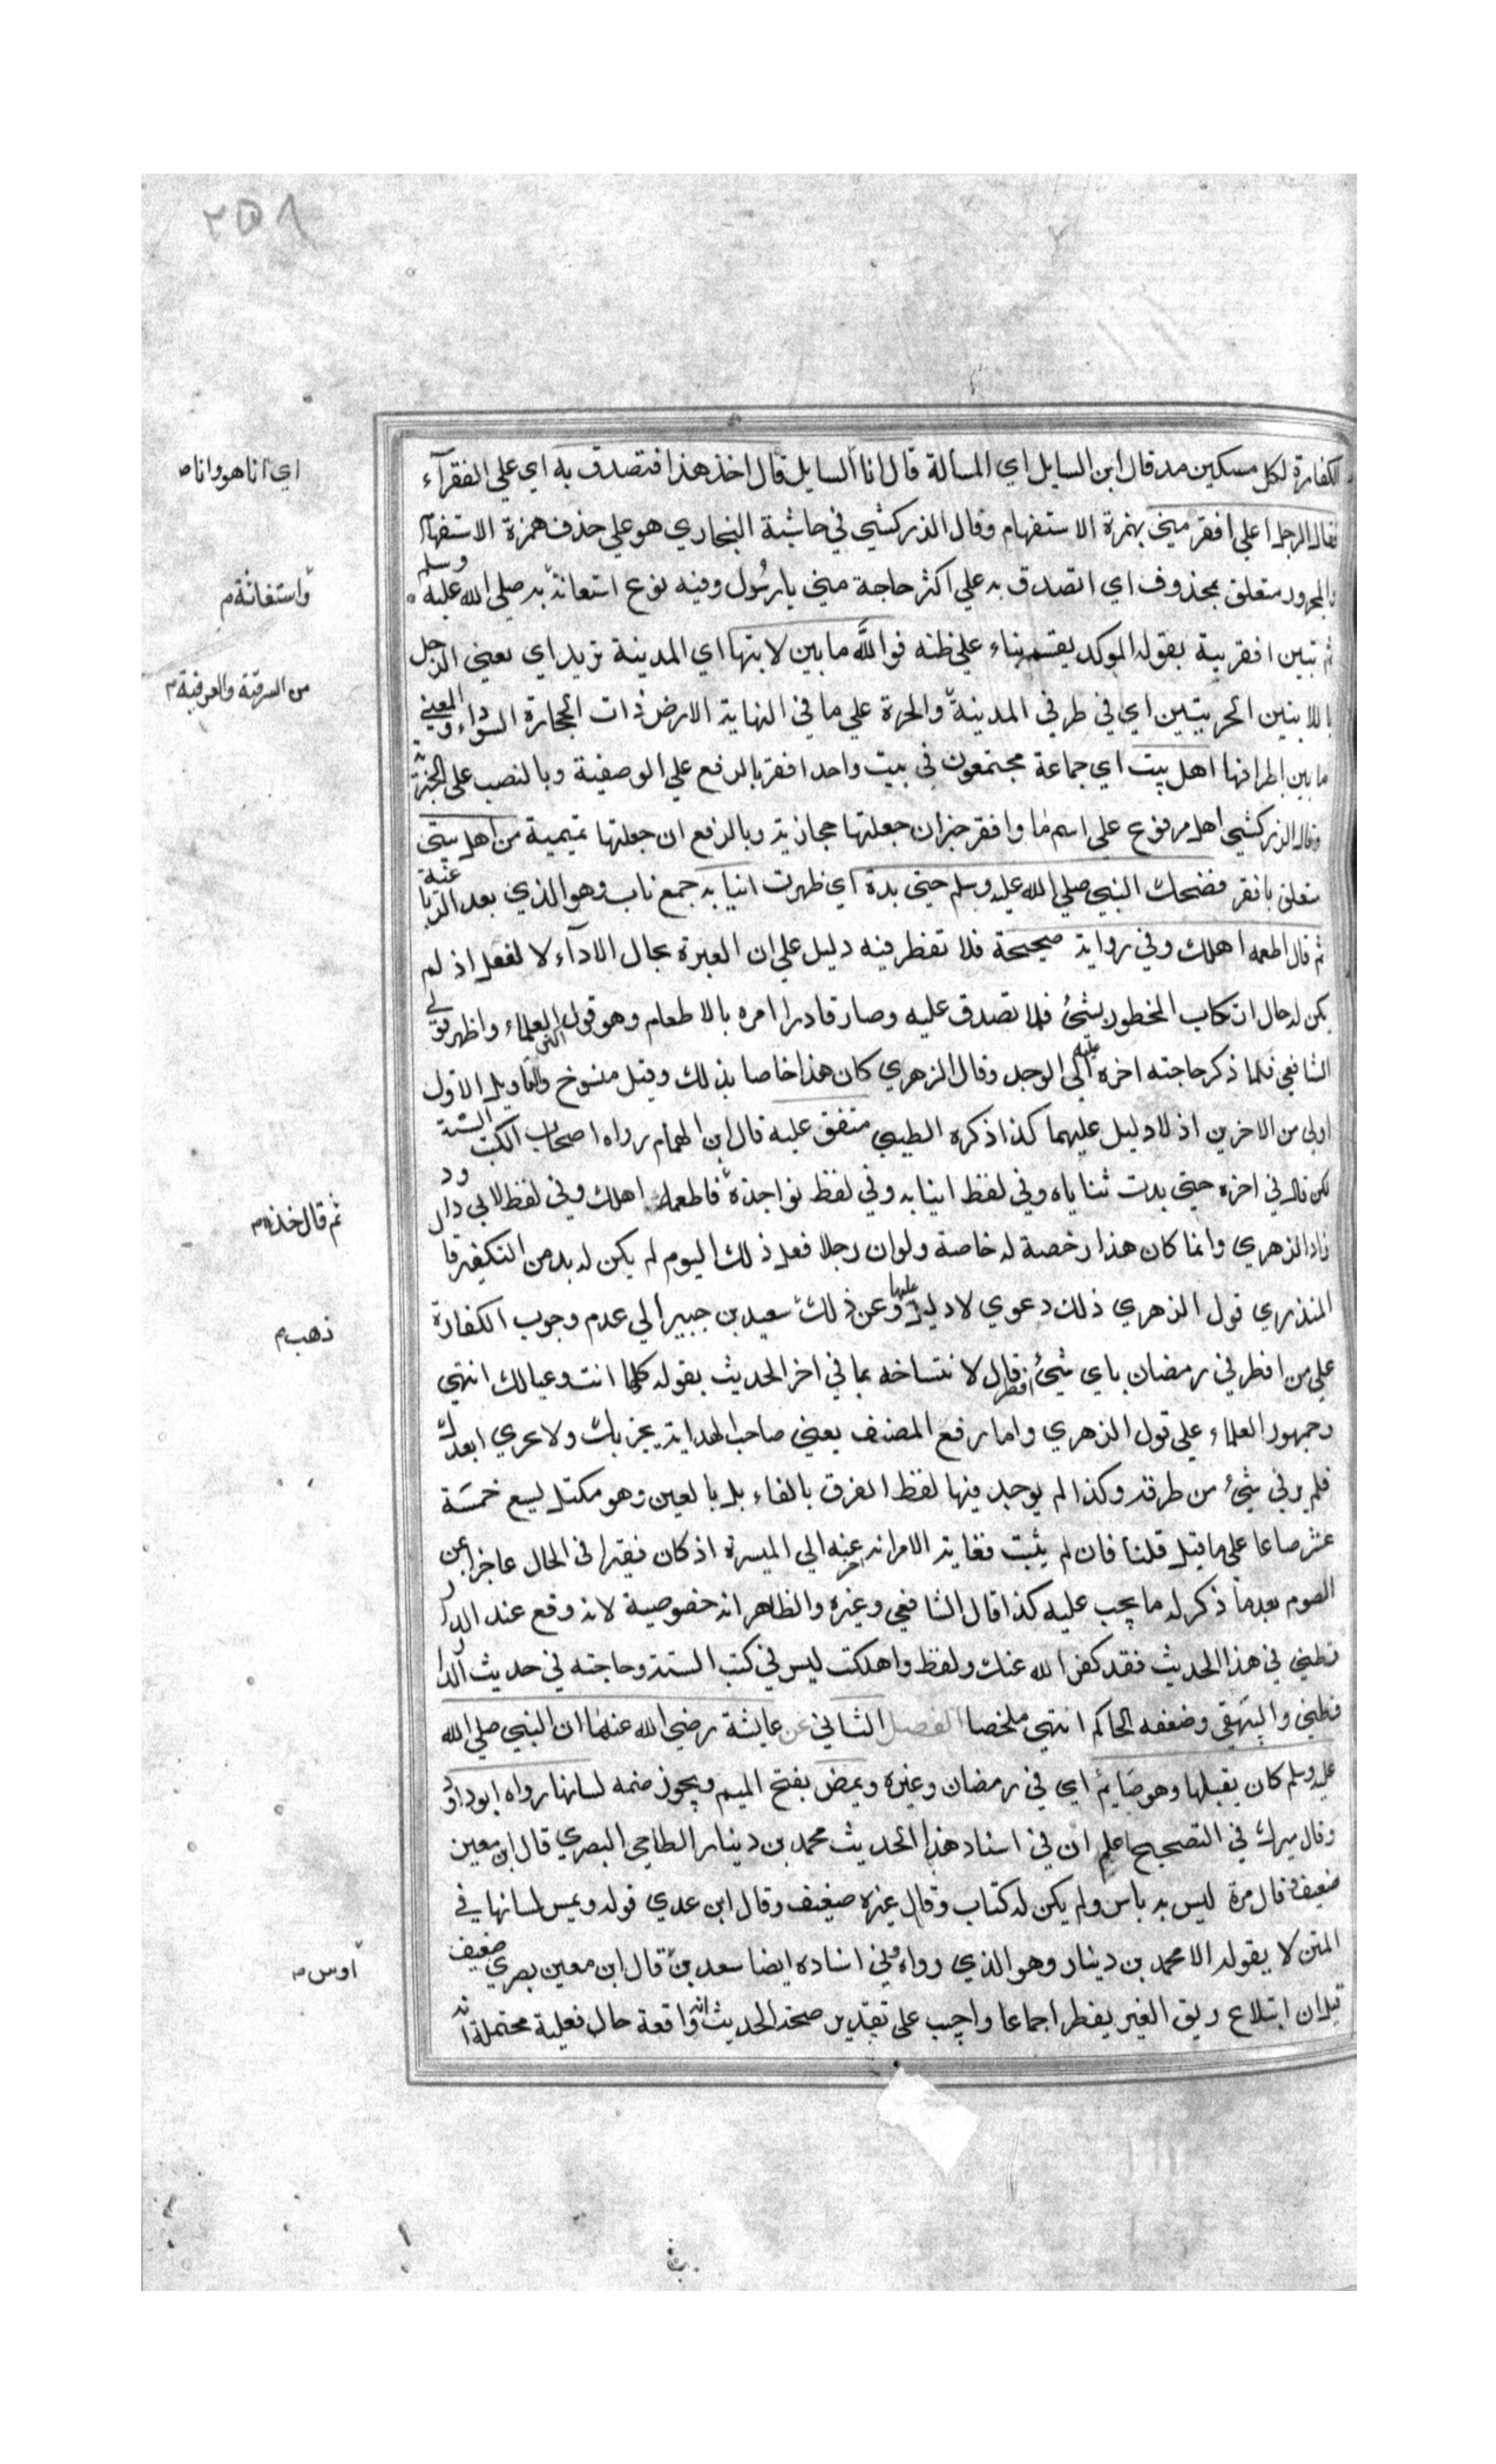 ٢٥٨
الكفارة لكل مسكين مد قال ابن السايل اي المسالة قال انا السايل قال اخذ هذا فتصدق به اي علي الفقرآء
اي انا هو وانا
فقال الرجل اعلي افقر مني بهمزة الاستفهام وقال الذركشي في حاشية البخاري هو علي حذف همزة الاستفهام
والمجرور متعلق بمحذوف اي اتصدق به علي اكثر حاجة مني يا رسول وفيه نوع استعانة به صلي الله عليه وسلم
واستغاثة م
ثم تبين افقرية بقوله الموكد بقسم بناء علي ظنه فوالله ما بين لابتها اي المدينة تريد اي يعني الرجل
من الشرقية والغربية م
باللابتين الحريتين اي في طرفي المدينة والحرة علي ما في النهاية الارض ذات الحجارة السوداء والمعني
ما بين اطرافها اهل بيت اي جماعة مجتمعون في بيت واحد افقر بالرفع علي الوصفية وبالنصب علي الخبرية
وقال الزركشي اهل مرفوع علي اسم ما وافقر خبر ان جعلتها حجازية وبالرفع ان جعلتها تميمية من اهل بيتي
متعلق بافقر فضحك النبي صلي الله عليه وسلم حتي بدة اي ظهرت انيابه جمع ناب وهو الذي بعد الرباعية
ثم قال اطعمه اهلك وفي رواية صحيحة فلا تفطر فيه دليل علي ان العبرة بحال الادآء لا لفعل اذ لم
يكن له حال ارتكاب المحظور بشئ فلما تصدق عليه وصار قادرا امره بالاطعام وهو قول اكثر العلماء واظهر قولي
الشافعي فلما ذكر حاجته اخره عليه الي الوجد وقال الزهري كان هذا خاصا بذلك وقيل منسوخ والتاويل الاول
اولي من الاخرين اذ لا دليل عليهما كذا ذكره الطيبي متفق عليه قال ابن الهمام رواه اصحاب الكتب الستة
لكن قال في اخره حتي بدت ثناياه وفي لفظ انيابه وفي لفظ نواجذه فاطعمه اهلك وفي لفظ لابي داود
ثم قال خذه م
زاد الزهري وانما كان هذا رخصة له خاصة ولو ان رجلا فعل ذلك اليوم لم يكن له بد من التكفير قا
المنذري قول الزهري ذلك دعوي لا دليل عليها وعن ذلك سعيد بن جبير الي عدم وجوب الكفارة
ذهب م
علي من افطر في رمضان باي شئ افطر قال لانتساخه بما في اخر الحديث بقوله كلها انت وعيالك انتهي
وجمهور العلماء علي قول الزهري واما رفع المصنف يعني صاحب الهداية يجزيك ولا يجزي احدا بعدك
فلم ير في شئ من طرقه وكذا لم يوجد فيها لفظ الفرق بالفاء بل بالعين وهو مكتل يسع خمسة
عشر صاعا علي ما قيل قلنا فان لم يثبت فغاية الامر انه اخر عنه الي الميسرة اذ كان فقيرا في الحال عاجزا عن
الصوم بعد ما ذكر له ما يجب عليه كذا قال الشافعي وغيره والظاهر انه خصوصية لانه وقع عند الدار
قطني في هذا الحديث فقد كفر الله عنك ولفظ واهلكت ليس في كتب الستة وحاجته في حديث الدار
قطني والبيهقي وضعفه الحاكم انتهي ملخصا الفصل الثاني عن عايشة رضي الله عنها ان النبي صلي الله
عليه وسلم كان يقبلها وهو صايم اي في رمضان وغيره ويمص بفتح الميم ويجوز ضمه لسانها رواه ابو داود
وقال ميرك في التصحيح اعلم ان في اسناد هذا الحديث محمد بن دينار الطاحي البصري قال ابن معين
ضعيف وقال مرة ليس به باس ولم يكن له كتاب وقال غيره ضعيف وقال ابن عدي قوله ويمس لسانها في
المتن لا يقوله الا محمد بن دينار وهو الذي رواه وفي اسناده ايضا سعد بن قال ابن معين بصري ضعيف
اوس
قيل ان ابتلاع ريق الغير يفطر اجماعا واجيب علي تقدير صحة الحديث انه واقعة حال فعلية محتملة انه